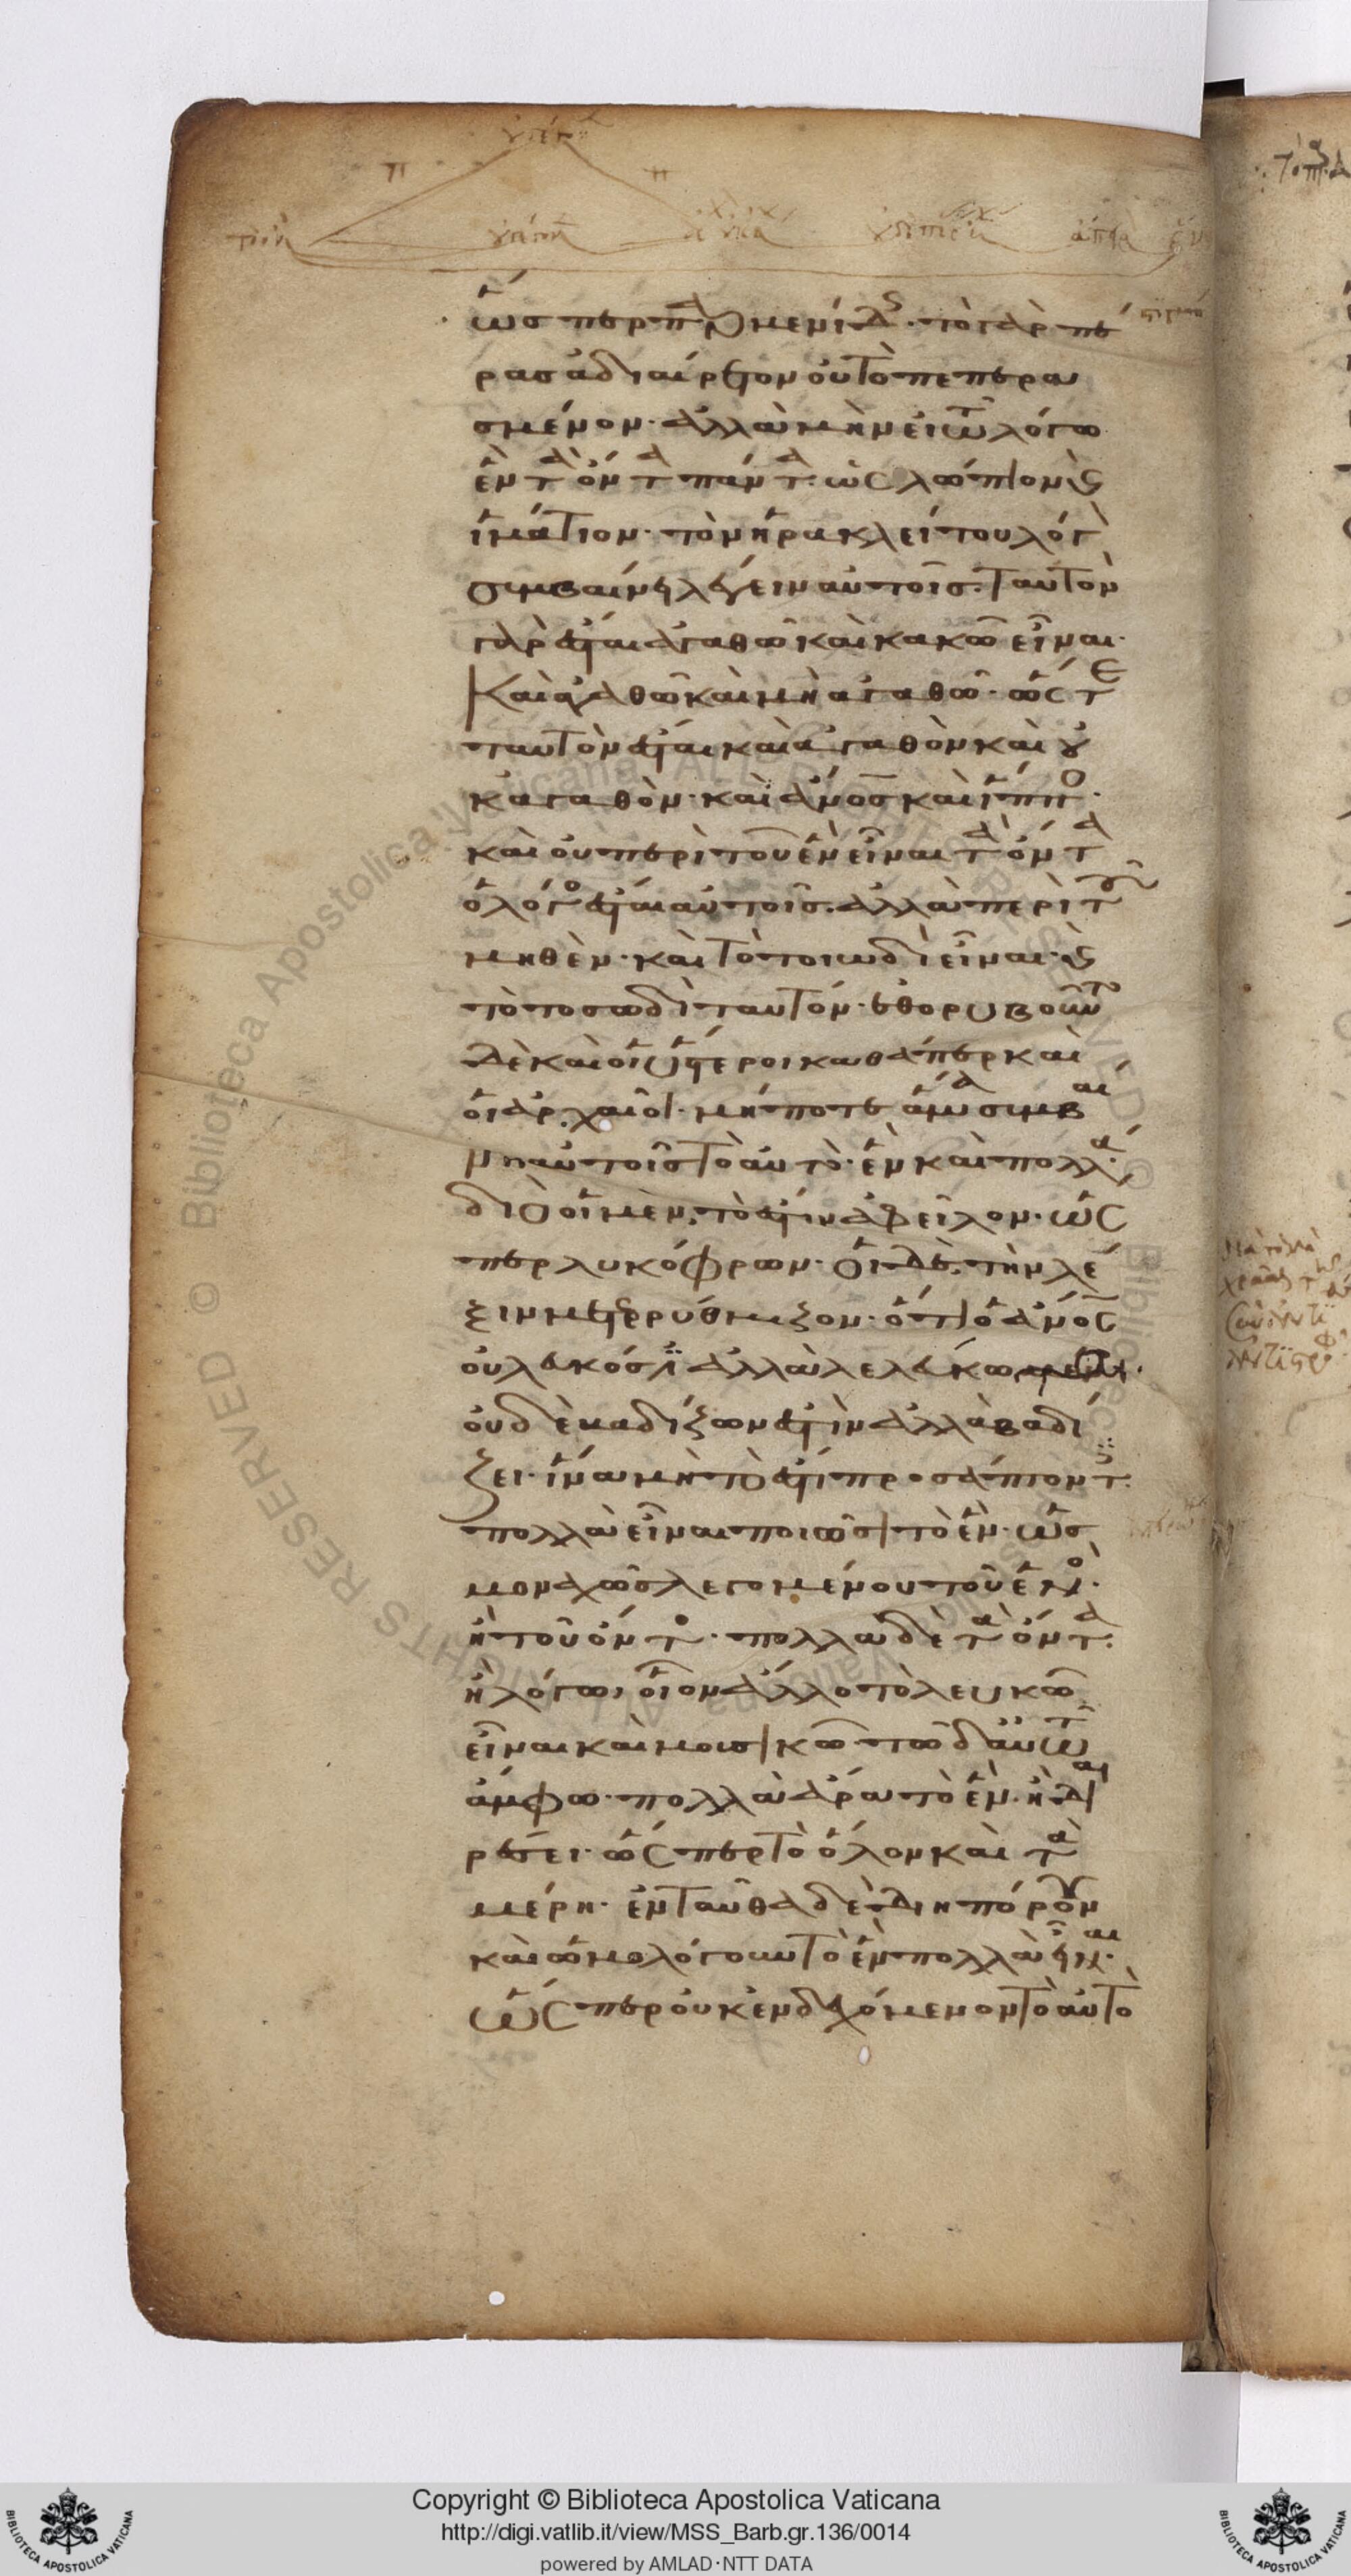 ὥσπερ παρμενίδης· τὸ γὰρ πέ
ρας ἀδιαίρετον οὐ τὸ πεπερα
σμένον· ἀλλὰ μὴν εἰ τῶ λόγω
ἓν τὰ ὄντα πάντα· ὡς λώπιον καὶ
ἱμάτιον· τὸν ἡρακλείτου λόγον
συμβαίνει λέγειν αὐτοῖς· ταυτὸν
γὰρ ἔσται ἀγαθῶ καὶ κακῶ εἶναι·
καὶ ἀγαθῶ καὶ μὴ ἀγαθῶ· ὥστε
ταυτὸν ἔσται καὶ ἀγαθὸν καὶ οὐ
κ ἀγαθὸν· καὶ ἄνος καὶ ἵππος·
καὶ οὐ περὶ τοῦ ἓν εἶναι τὰ ὄντα
ὁ λόγος ἔσται αὐτοῖς· ἀλλὰ περὶ τοῦ
μηθὲν· καὶ τὸ τοιωδὶ εἶναι· καὶ
τὸ ποσωδὶ ταυτόν· ἐθορυβοῦντο
δὲ καὶ οἱ ὕστεροι καθάπερ καὶ
οἱ ἀρχαῖοι· μήποτε ἅμα συμβαί
νη αὐτοῖς τὸ αὐτὸ· ἓν καὶ πολλά·
διὸ οἱ μὲν, τὸ ἔστιν ἀφεῖλον· ὥς
περ λυκόφρων· οἱ δὲ, τὴν λέ
ξιν μετερρύθμιζον· ὅτι ὁ ἄνος
οὐ λευκός ἐστι ἀλλὰ λελεύκωται·
οὐδὲ βαδίζων ἐστὶν ἀλλὰ βαδί
ζει· ἵνα μὴ τὸ ἔστι προσάπτοντες·
πολλὰ εἶναι ποιῶσι τὸ ἓν· ὡς
μοναχῶς λεγομένου τοῦ ἑνὸς·
ἢ τοῦ ὄντος· πολλὰ δὲ τὰ ὄντα·
ἢ λόγω, οἷον ἄλλο τὸ λευκῶ
εἶναι καὶ μουσικῶ τῶ δ' αὐτῶ
ἄμφω· πολλὰ ἄρα τὸ ἓν· ἢ διαι
ρέσει· ὥσπερ τὸ ὅλον καὶ τὰ
μέρη· ἐνταῦθα δὲ διηπόρουν
καὶ ὡμολόγουν τὸ ἓν πολλὰ εἶναι·
ὥσπερ οὐκ ἐνδεχόμενον τὸ αὐτὸ
Copyright © Biblioteca Apostolica Vaticana
http://digi.vatlib.it/view/MSS_Barb.gr.136/0014
powered by AMLAD·NTT DATA